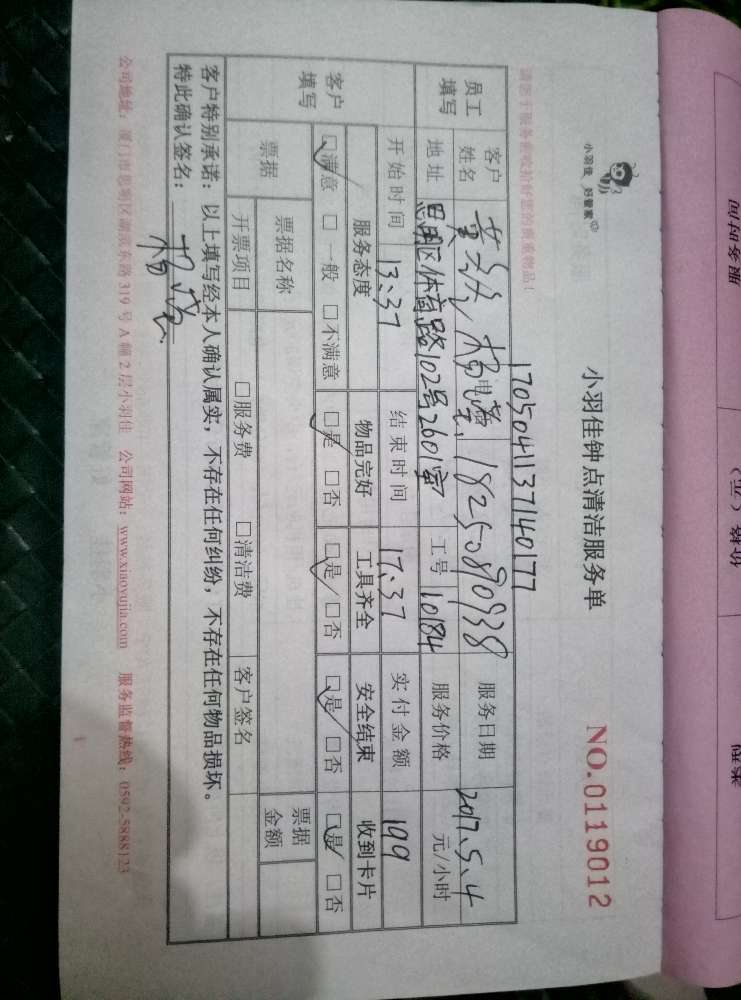 小羽佳 好管家
小羽佳钟点清洁服务单
NO.0119012
请您于服务前收拾好您的贵重物品!
17050411137140177
员工填写
客户姓名
杨
电话
18250890938
服务日期
2017.5.4
地址
思明区体育路102号2601室
工号
10184
服务价格
元/小时
开始时间
13:37
结束时间
17:37
实付金额
199
客户填写
服务态度
物品完好
工具齐全
安全结束
收到卡片
☑满意 □一般 □不满意
☑是 □否
☑是 □否
☑是 □否
☑是 □否
票据
票据名称
票据金额
开票项目
□服务费 □清洁费
客户签名
客户特别承诺:以上填写经本人确认属实,不存在任何纠纷,不存在任何物品损坏。
特此确认签名:杨
公司地址:厦门市思明区湖滨东路319号A幢2层小羽佳 公司网站:www.xiaoyujia.com 服务监督热线:0592-5888123
服务时间